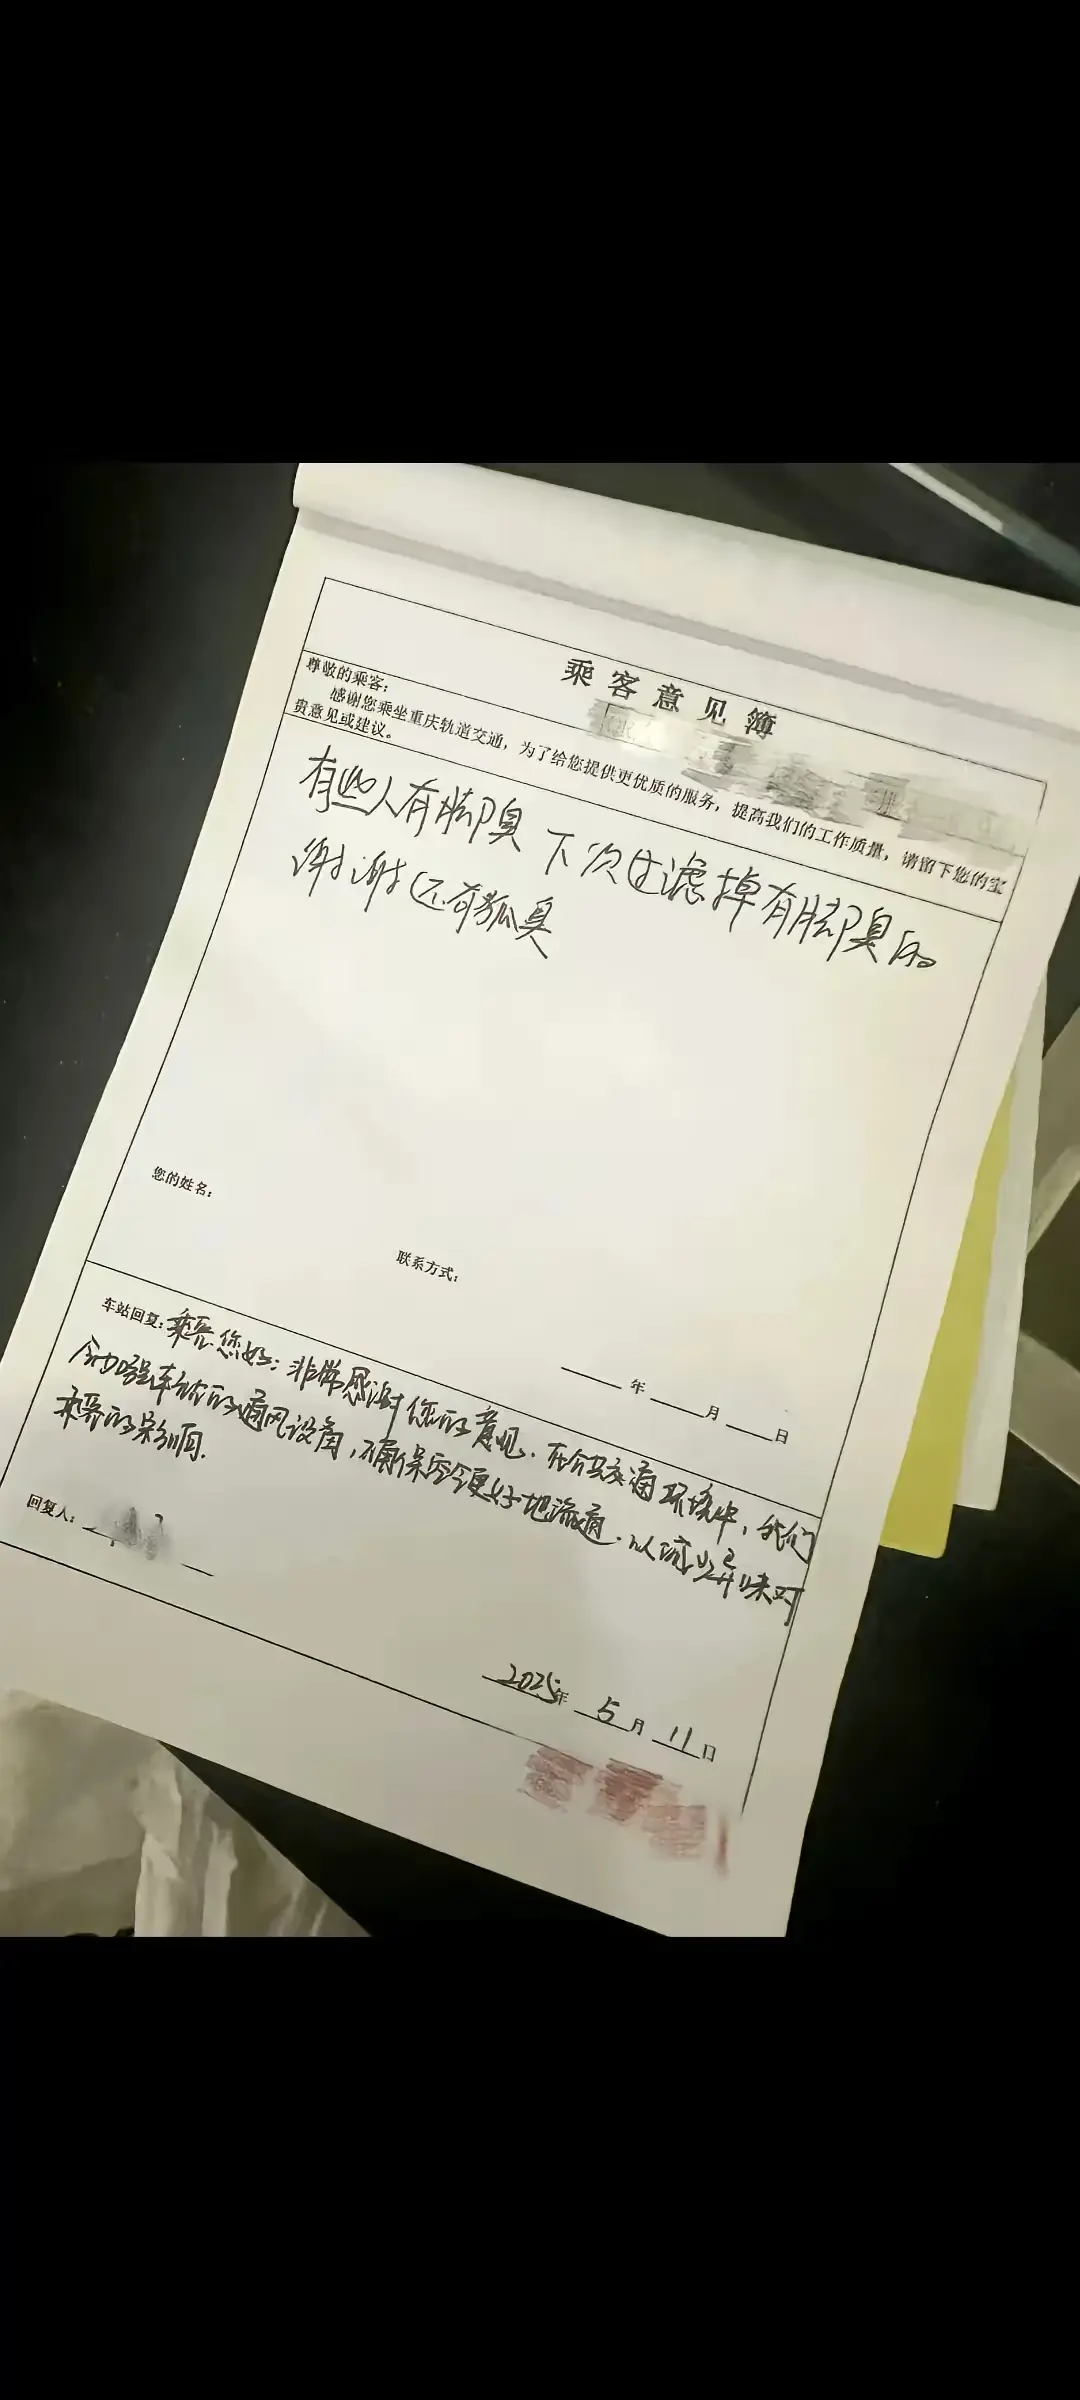 乘客意见簿
尊敬的乘客：
感谢您乘坐重庆轨道交通，为了给您提供更优质的服务，提高我们的工作质量，请留下您的宝
贵意见或建议。
有些人有脚臭 下次过滤掉有脚臭的
谢谢 还有狐臭
您的姓名：
联系方式：
年 月 日
车站回复：乘客您好：非常感谢您的意见．在公共交通环境中，我们
会加强车站的通风设备，确保空气更好地流通．以减少异味对
乘客的影响．
回复人：
2025年 5月 11日